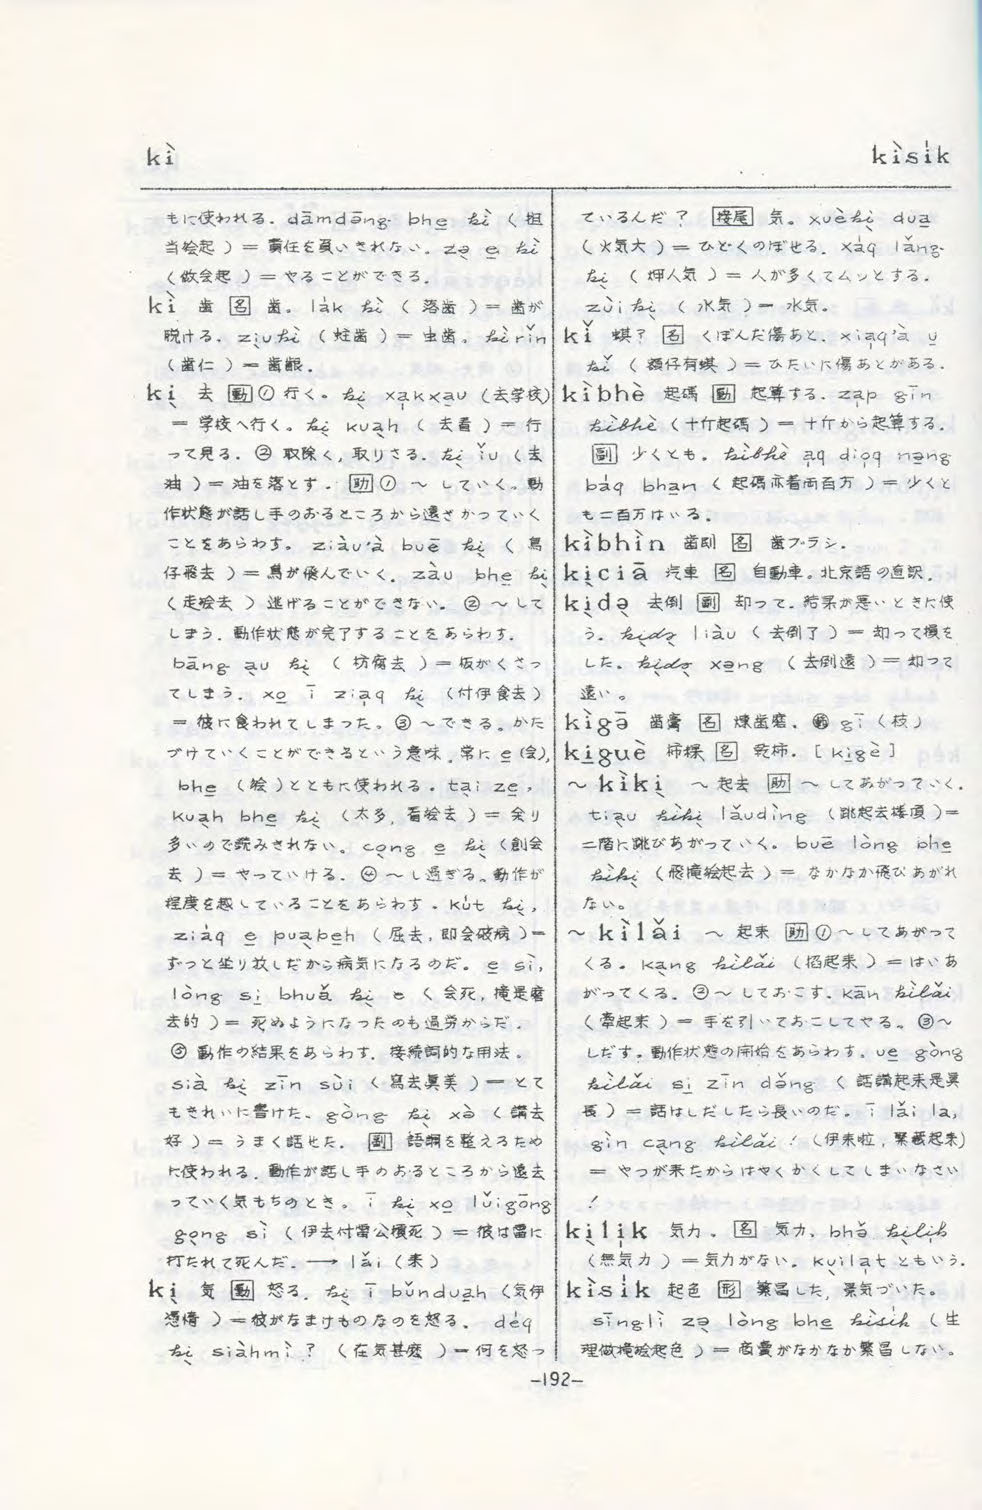 kì
kìsı̍k
もに使われる。dāmdāng bhe̲ kì (担
当絵起) = 責任を負いきれない。zə̣ e̲ kì
(做会起) = やることができる。
kì 歯 [名] 歯。la̍k kì (落歯) = 歯が
脱ける。ziụkì (蛀歯) = 虫歯。kìrı̌n
(歯仁) = 歯齦。
kị 去 [動] ① 行く。kị xa̩kxạu (去学校)
= 学校へ行く。kị kuạh (去看) = 行
って見る。② 取除く, 取りさる。kị ı̌u (去
油) = 油を落とす。[助] ① ～していく。動
作状態が話し手のおるところから遠ざかっていく
ことをあらわす。ziàu'à buē kị (鳥
仔飛去) = 鳥が飛んでいく。zàu bhe̲ kị
(走絵去) 逃げることができない。② ～して
しまう。動作状態が完了することをあらわす。
bāng ạu kị (枋腐去) = 板がくさっ
てしまう。xo̲ ī zia̩q kị (付伊食去)
= 彼に食われてしまった。③ ～できる。かた
づけていくことができるという意味。常に e̲ (会),
bhe̲ (絵) とともに使われる。tại ze̲,
kuạh bhe̲ kị (太多, 看絵去) = 余り
多いので読みきれない。cọng e̲ kị (創会
去) = やっていける。④ ～し過ぎる。動作が
程度を越していることをあらわす。ku̍t kị,
zia̍q e̲ puạbẹh (屈去, 即会破病) =
ずっと坐り放しだから病気になるのだ。e̲ sì,
lòng si̲ bhuǎ kị e (会死, 攏是磨
去的) = 死ぬようになったのも過労からだ。
⑤ 動作の結果をあらわす。接続詞的な用法。
sià kị zīn sùi (寫去真美) = とて
もきれいに書けた。gòng kị xə̀ (講去
好) = うまく話せた。[副] 語調を整えるため
に使われる。動作が話し手のおるところから遠去
っていく気もちのとき。ī kị xo̲ lǔigōng
gọng sì (伊去付雷公摃死) = 彼は雷に
打たれて死んだ。→ lǎi (来)
kị 気 [動] 怒る。kị ī bǔnduạh (気伊
憑惰) = 彼がなまけものなのを怒る。de̍q
kị siàhmì? (在気甚麼) = 何を怒っ
ているんだ? [接尾] 気。xuèkị dua̲
(火気大) = ひどくのぼせる。xa̍q lǎng
kị (呷人気) = 人が多くてムッとする。
zùikị (水気) = 水気。
kı̌ 蜞? [名] くぼんだ傷あと。xia̩q'à u̲
kı̌ (額仔有蜞) = ひたいに傷あとがある。
kìbhè 起碼 [動] 起算する。za̩p gı̄n
kìbhè (十斤起碼) = 十斤から起算する。
[副] 少くとも。kìbhè a̩q dio̩q nə̲ng
ba̍q bha̲n (起碼亦着両百万) = 少くと
も二百万はいる。
kìbhìn 歯刷 [名] 歯ブラシ。
kịciā 汽車 [名] 自動車。北京語の直訳。
kịdə̣ 去倒 [副] 却って。結果が悪いときに使
う。kịdə̣ liàu (去倒了) = 却って損を
した。kịdə̣ xə̲ng (去倒遠) = 却って
遠い。
kìgə̄ 歯膏 [名] 煉歯磨。gī (枝)
kịguè 柿粿 [名] 乾柿。[kịgè]
～kìkị ～起去 [助] ～してあがっていく。
tiạu kìkị lǎudìng (跳起去楼頂) =
二階に跳びあがっていく。buē lòng bhe̲
kìkị (飛攏絵起去) = なかなか飛びあがれ
ない。
～kìlǎi ～起来 [助] ① ～してあがって
くる。kạng kìlǎi (掐起来) = はいあ
がってくる。② ～しておこす。kān kìlǎi
(牽起来) = 手を引いておこしてやる。③ ～
しだす。動作状態の開始をあらわす。ue̲ gòng
kìlǎi si̲ zīn də̌ng (話講起来是真
長) = 話はしだしたら長いのだ。ī lǎi la,
gìn cạng kìlǎi! (伊来啦, 緊蔵起来)
= やつが来たからはやくかくしてしまいなさい
!
kịli̩k 気力。[名] 気力。bhə̌ kịli̩k
(無気力) = 気力がない。kụila̩t ともいう。
kìsı̍k 起色 [形] 繁昌した, 景気づいた。
sīnglì zə̣ lòng bhe̲ kìsı̍k (生
理做攏絵起色) = 商売がなかなか繁昌しない。
—192—